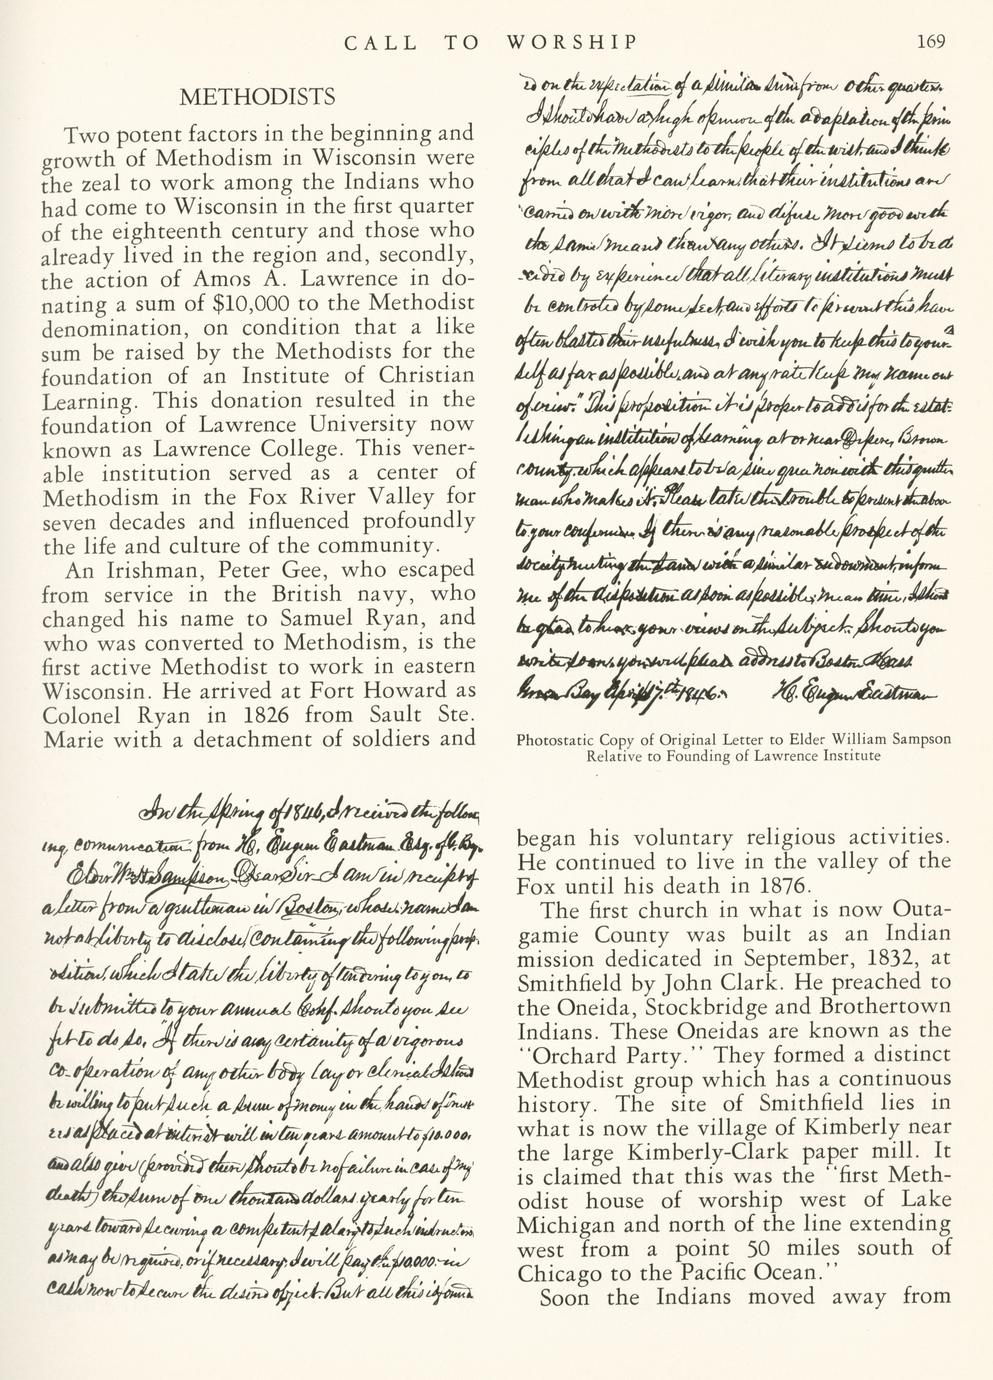 CALL TO WORSHIP 169
METHODISTS
Two potent factors in the beginning and
growth of Methodism in Wisconsin were
the zeal to work among the Indians who
had come to Wisconsin in the first quarter
of the eighteenth century and those who
already lived in the region and, secondly,
the action of Amos A. Lawrence in do-
nating a sum of $10,000 to the Methodist
denomination, on condition that a like
sum be raised by the Methodists for the
foundation of an Institute of Christian
Learning. This donation resulted in the
foundation of Lawrence University now
known as Lawrence College. This vener-
able institution served as a center of
Methodism in the Fox River Valley for
seven decades and influenced profoundly
the life and culture of the community.
An Irishman, Peter Gee, who escaped
from service in the British navy, who
changed his name to Samuel Ryan, and
who was converted to Methodism, is the
first active Methodist to work in eastern
Wisconsin. He arrived at Fort Howard as
Colonel Ryan in 1826 from Sault Ste.
Marie with a detachment of soldiers and
In the Spring of 1846, I received the follow
ing communication from H. Eugene Eastman Esq. of G. Bay.
Elder Wm H Sampson, Dear Sir I am in receipt of
a letter from a gentleman in Boston, whose name I am
not at liberty to disclose, containing the following prop-
osition, which I take the liberty of tendering to you, to
be submitted to your annual Conf. should you see
fit to do so. "If there is any certainity of a vigorous
co-operation of any other body lay or clerical I should
be willing to put such a sum of money in the hands of trust
ees as placed at interest will in ten years amount to $10.000,
and also give (provided there should be no failure in case of my
death) the sum of one thousand dollars yearly for ten
years toward securing a competent salary to such instructors
as may be required, or if necessary, I will pay the $10.000 in
cash now to secure the desired object. But all this is found
ed on the expectation of a similar sum from other quarters.
I should have a high opinion of the adaptation of the prin
ciples of the Methodists to the people of the west, and I think
from all that I can learn, that their institutions are
carried on with more vigor, and difuse more good with
the same means than any others. It seems to be de
cided by experience that all literary institutions must
be controled by some sect, and efforts to prevent this have
often blasted their usefulness. I wish you to keep this to your-
self as far as possible, and at any rate keep my name out
of view." This proposition it is proper to add is for the estab-
lishing an institution of learning at or near Depere, Brown
county, which appears to be a sine qua non with this gentle
man who makes it. Please take the trouble to present the above
to your conference. If there is any reasonable prospect of the
society meeting the same with a similar endowment, inform
me of the disposition as soon as possible; mean time, I should
be glad to hear your views on the subject. Should you
write soon, you will please address to Boston Mass.
Green Bay April 17.th 1846. H. Eugene Eastman
Photostatic Copy of Original Letter to Elder William Sampson
Relative to Founding of Lawrence Institute
began his voluntary religious activities.
He continued to live in the valley of the
Fox until his death in 1876.
The first church in what is now Outa-
gamie County was built as an Indian
mission dedicated in September, 1832, at
Smithfield by John Clark. He preached to
the Oneida, Stockbridge and Brothertown
Indians. These Oneidas are known as the
"Orchard Party." They formed a distinct
Methodist group which has a continuous
history. The site of Smithfield lies in
what is now the village of Kimberly near
the large Kimberly-Clark paper mill. It
is claimed that this was the "first Meth-
odist house of worship west of Lake
Michigan and north of the line extending
west from a point 50 miles south of
Chicago to the Pacific Ocean."
Soon the Indians moved away from